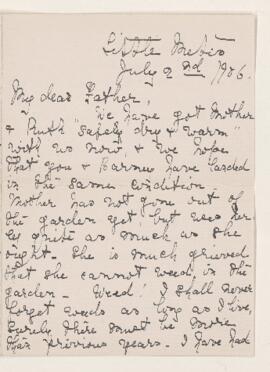 Little Metis
July 2nd 1906.
My dear Father,
We have got Mother
& Ruth "safely dry & warm"
with us now & we hope
that you & Barney have landed
in the same condition.
Mother has not gone out of
the garden yet! but uses her
quite as much as she
ought. She is much grieved
that she cannot weed in the
garden - Weed! I shall never
forget weeds as long as I live,
surely there must be more
than previous years. I have had